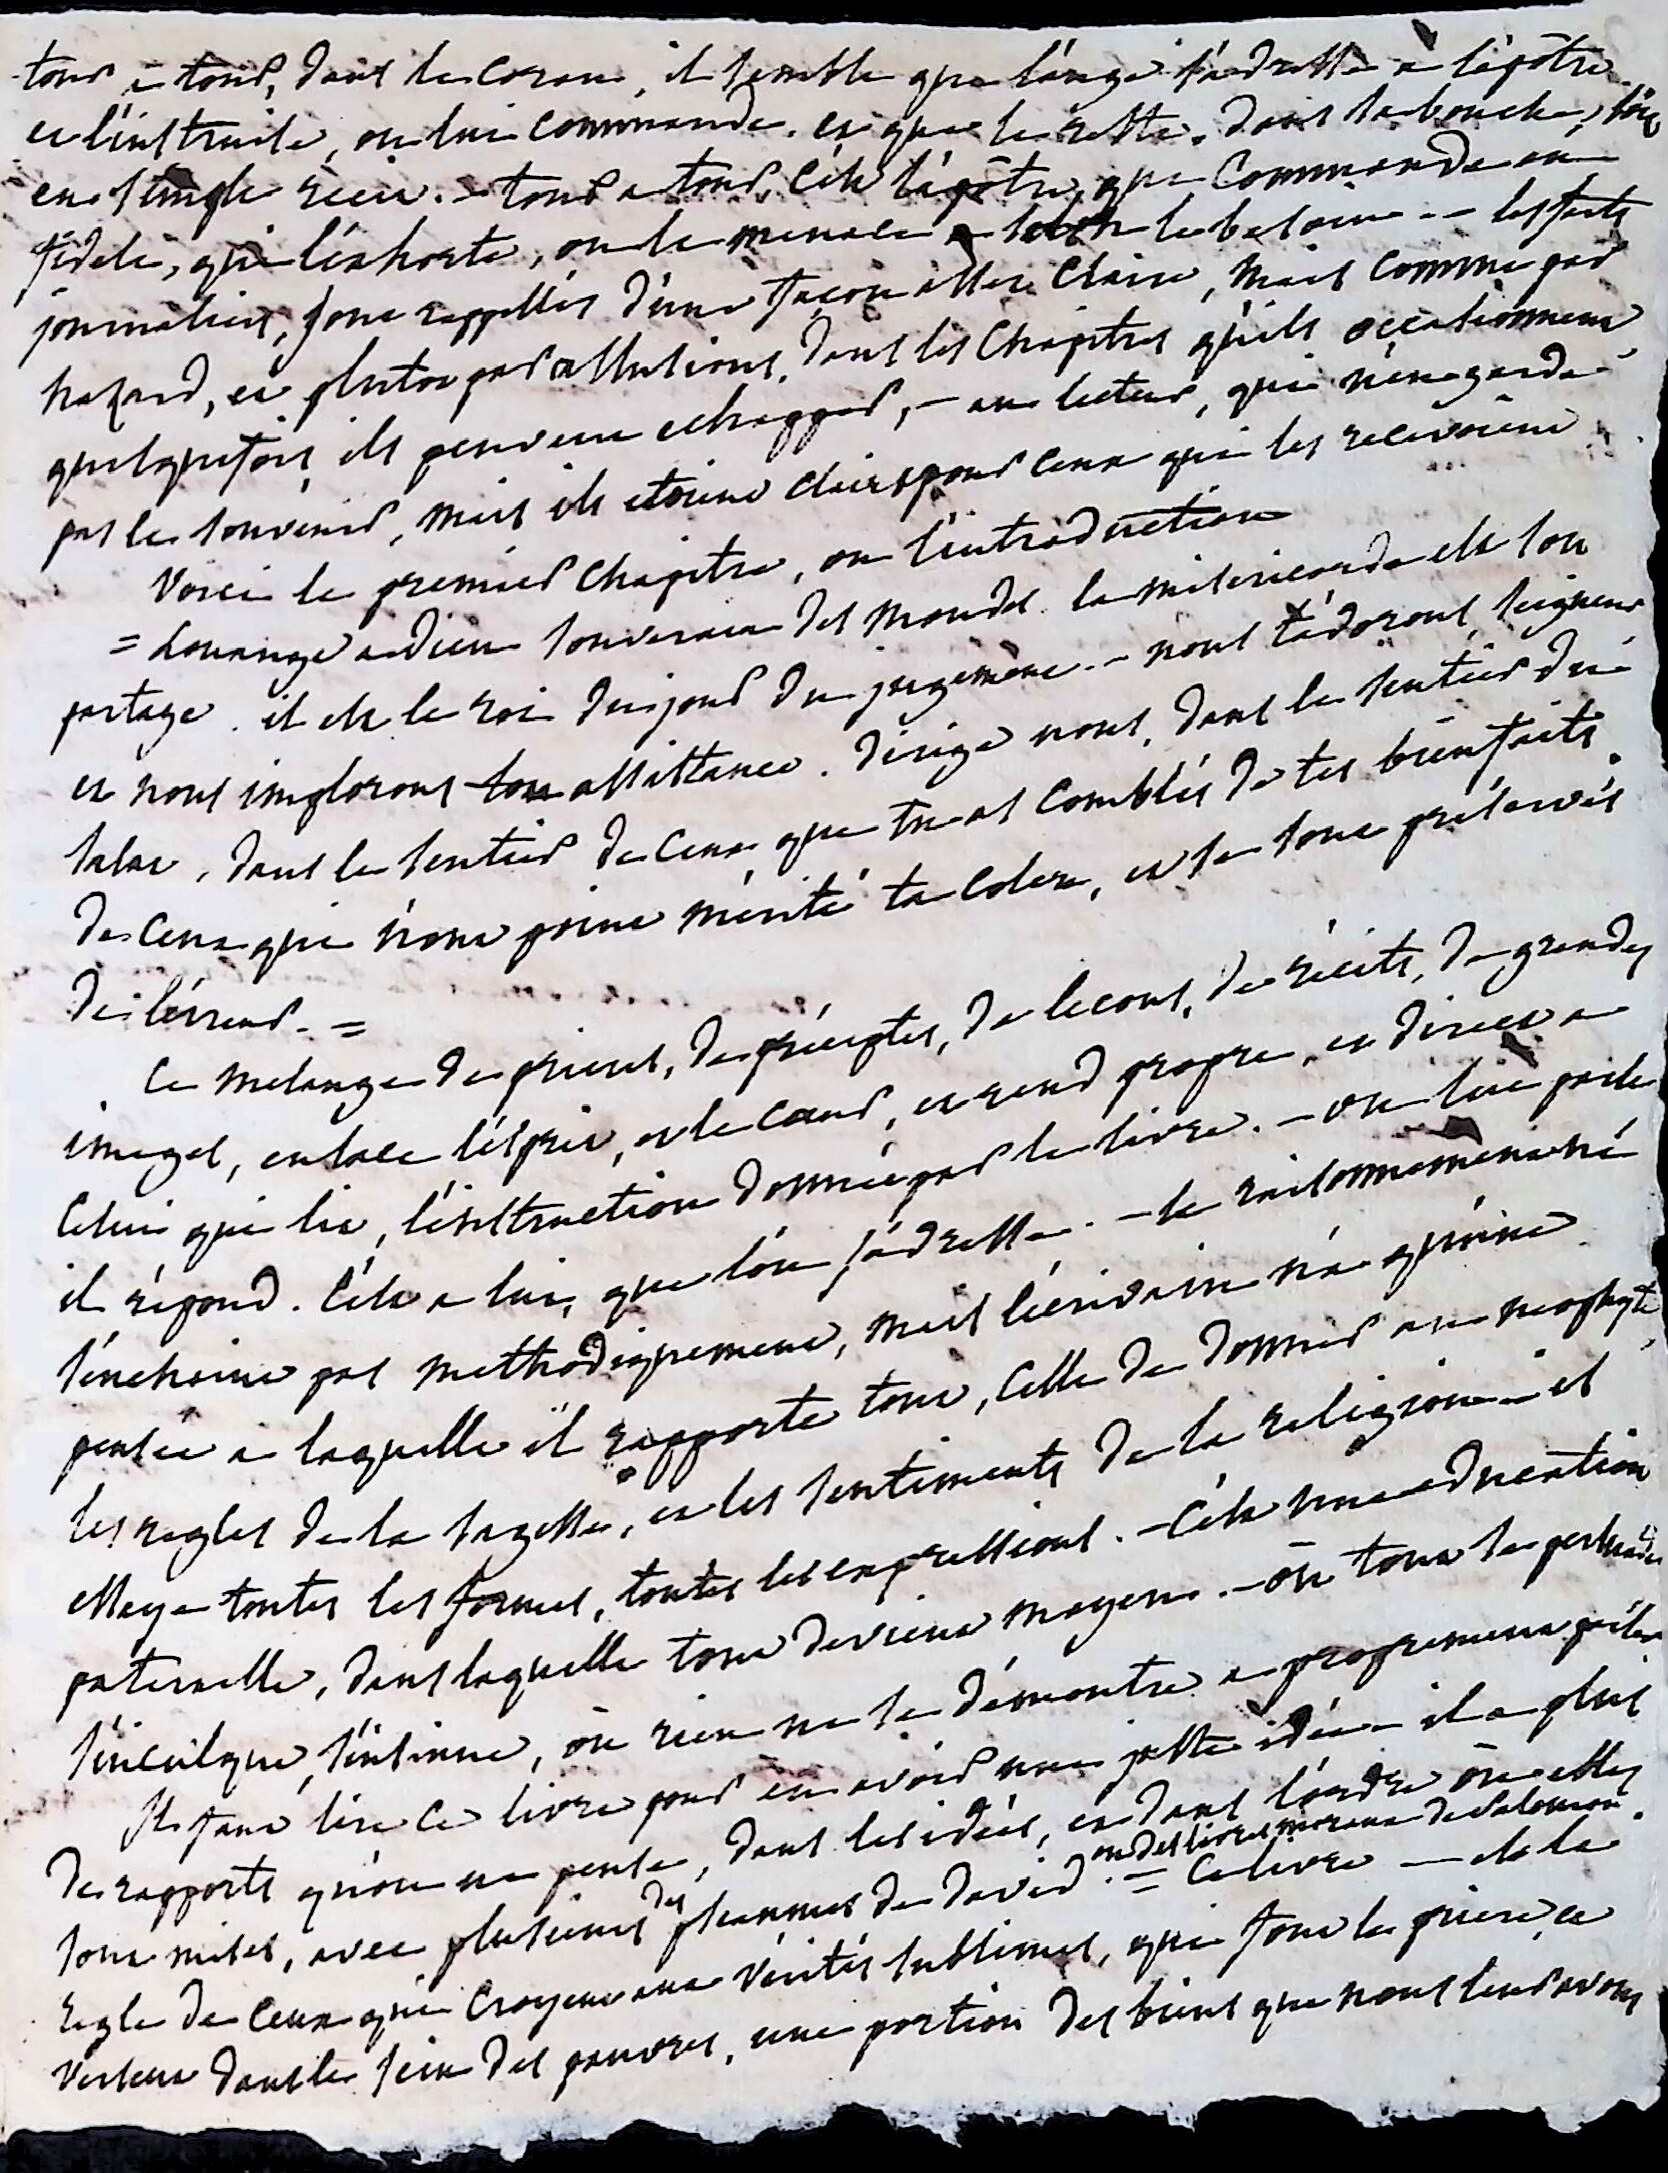 tour à tour, dans le coran, il semble que l'ange s'adresse a l'apôtre
et l'instruit, ou lui commande, et que le reste, dans sa bouche, soit
un simple récit. - tour a tour, c'est l'apôtre, qui commande au
fidele, qui l'exhorte, ou le menace selon le besoin -- les faits
journaliers, sont rappellés d'une façon assez claire, mais comme par
hazard, et plutot par allusions, dans les chapitres qu'ils occasionnent
quelquefois, ils peuvent echapper, - au lecteur, qui n'en garde
pas le souvenir, mais ils etoient clairs pour ceux qui les recevoient
Voici le premier chapitre, ou l'introduction
= Louange a dieu souverain des mondes. la misericorde est son
partage. il est le roi du jour du jugement. - nous t'adorons, seigneur
et nous implorons ton assistance. dirige nous, dans le sentier du
salut, dans le sentier de ceux que tu as comblés de tes bienfaits.
de ceux qui n'ont point mérité ta colere, et se sont préservés
de l'erreur. =
Ce melange de prieres, de préceptes, de lecons, de récits, de grandes
images, enlace l'esprit, et le cœur, et rend propre, et direct a
celui qui lit, l'instruction donnée par le livre. - on lui parle
il répond. c'est a lui, que l'on s'adresse. - le raisonnement ne
s'enchaine pas methodiquement, mais l'écrivain n'a qu'une
pensée a laquelle il rapporte tout, celle de donner au neophyte,
les regles de la sagesse, et les sentiments de la religion - il
essaye toutes les formes, toutes les expressions. - c'est une education
paternelle, dans laquelle tout devient moyen. - où tout se persuade
s'inculque, s'insinue, où rien ne se démontre a proprement parler.
Il faut lire ce livre pour en avoir une juste idée - il a plus
de rapports qu'on ne pense, dans les idées, et dans l'ordre où elles
sont mises, avec plusieurs des pseaumes de david. ou des livres moraux de Salomon. = Ce livre - est la
regle de ceux qui croyent aux vérités sublimes, qui font la priere, et
versent dans le sein des pauvres, une portion des biens que nous leur avons